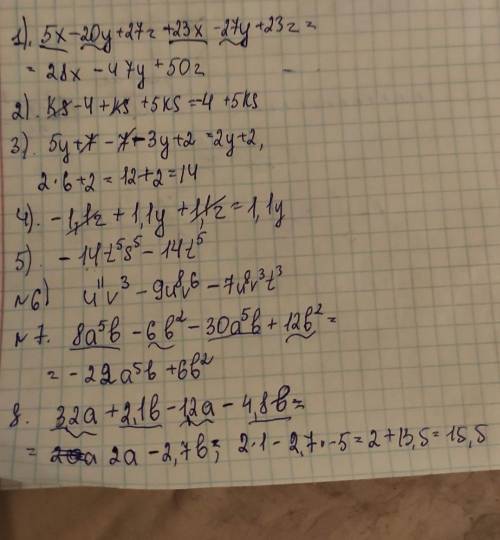 1). 5x - 20y + 27z + 23x - 27y + 23z =
= 28x - 47y + 50z
2). ks - 4 + ks + 5ks = -4 + 5ks
3). 5y + 7 - 7 - 3y + 2 = 2y + 2,
2·6 + 2 = 12 + 2 = 14
4). -1,1z + 1,1y + 1,1z = 1,1y
5). -14t⁵s⁵ - 14t⁵
№6) u¹¹v³ - 9u⁸v⁶ - 7u⁸v³t³
№7. 8a⁵b - 6b² - 30a⁵b + 12b² =
= -22a⁵b + 6b²
8. 32a + 2,1b - 12a - 4,8b =
= 2a - 2,7b; 2·1 - 2,7·-5 = 2 + 13,5 = 15,5